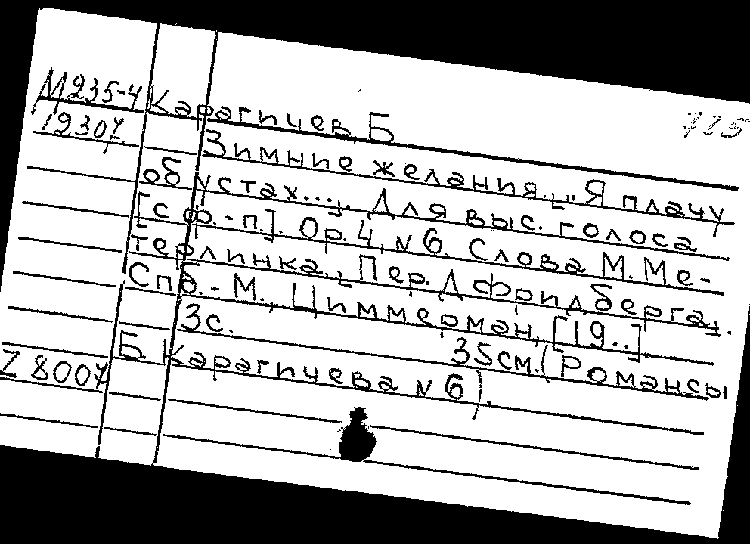 М235-4 Карагичев, Б 715
19307 Зимние желания. „Я плачу
об устах...“. Для выс. голоса
[с ф.-п.]. Ор. 4, N 6. Слова М. Ме-
терлинка. Пер. Д. Фридберга.
Спб.-М., Циммерман, [19..].
3с. 35см. (Романсы
Z 8007 Б Карагичева N 6).